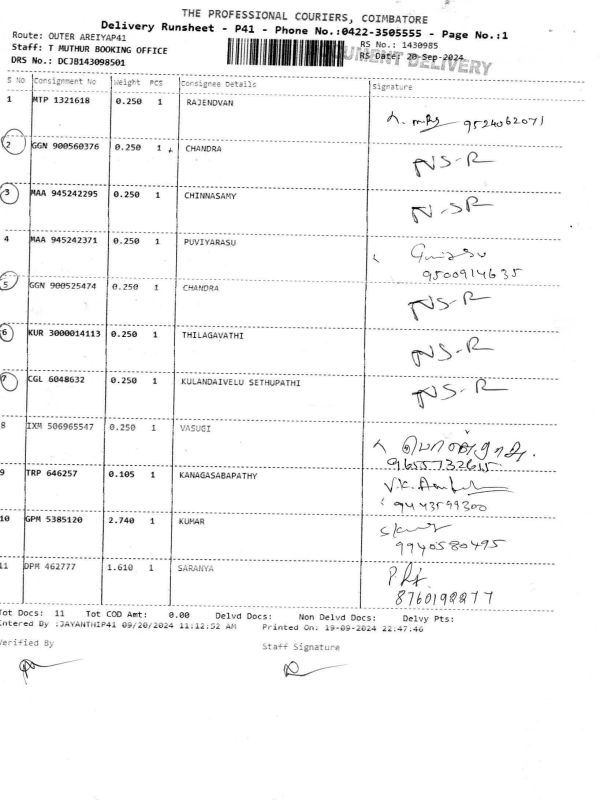 THE PROFESSIONAL COURIERS, COIMBATORE
Delivery Runsheet - P41 - Phone No.:0422-3505555 - Page No.:1
Route: OUTER AREIYAP41 RS No.: 1430985
Staff: T MUTHUR BOOKING OFFICE RS Date: 20-Sep-2024
DRS No.: DCJB143098501 DOCUMENT DELIVERY
S No Consignment No Weight PCS Consignee Details Signature
1 MTP 1321618 0.250 1 RAJENDVAN 9524062071
2 GGN 900560376 0.250 1 CHANDRA NS-R
3 MAA 945242295 0.250 1 CHINNASAMY N-SR
4 MAA 945242371 0.250 1 PUVIYARASU
9500914635
5 GGN 900525474 0.250 1 CHANDRA NS-R
6 KUR 3000014113 0.250 1 THILAGAVATHI NS-R
7 CGL 6048632 0.250 1 KULANDAIVELU SETHUPATHI NS-R
8 IXM 506965547 0.250 1 VASUGI
9655732615
9 TRP 646257 0.105 1 KANAGASABAPATHY
9443599300
10 GPM 5385120 2.740 1 KUMAR
9940580495
11 DPM 462777 1.610 1 SARANYA
8760192277
Tot Docs: 11 Tot COD Amt: 0.00 Delvd Docs: Non Delvd Docs: Delvy Pts:
Entered By :JAYANTHIP41 09/20/2024 11:12:52 AM Printed On: 19-09-2024 22:47:46
Verified By Staff Signature